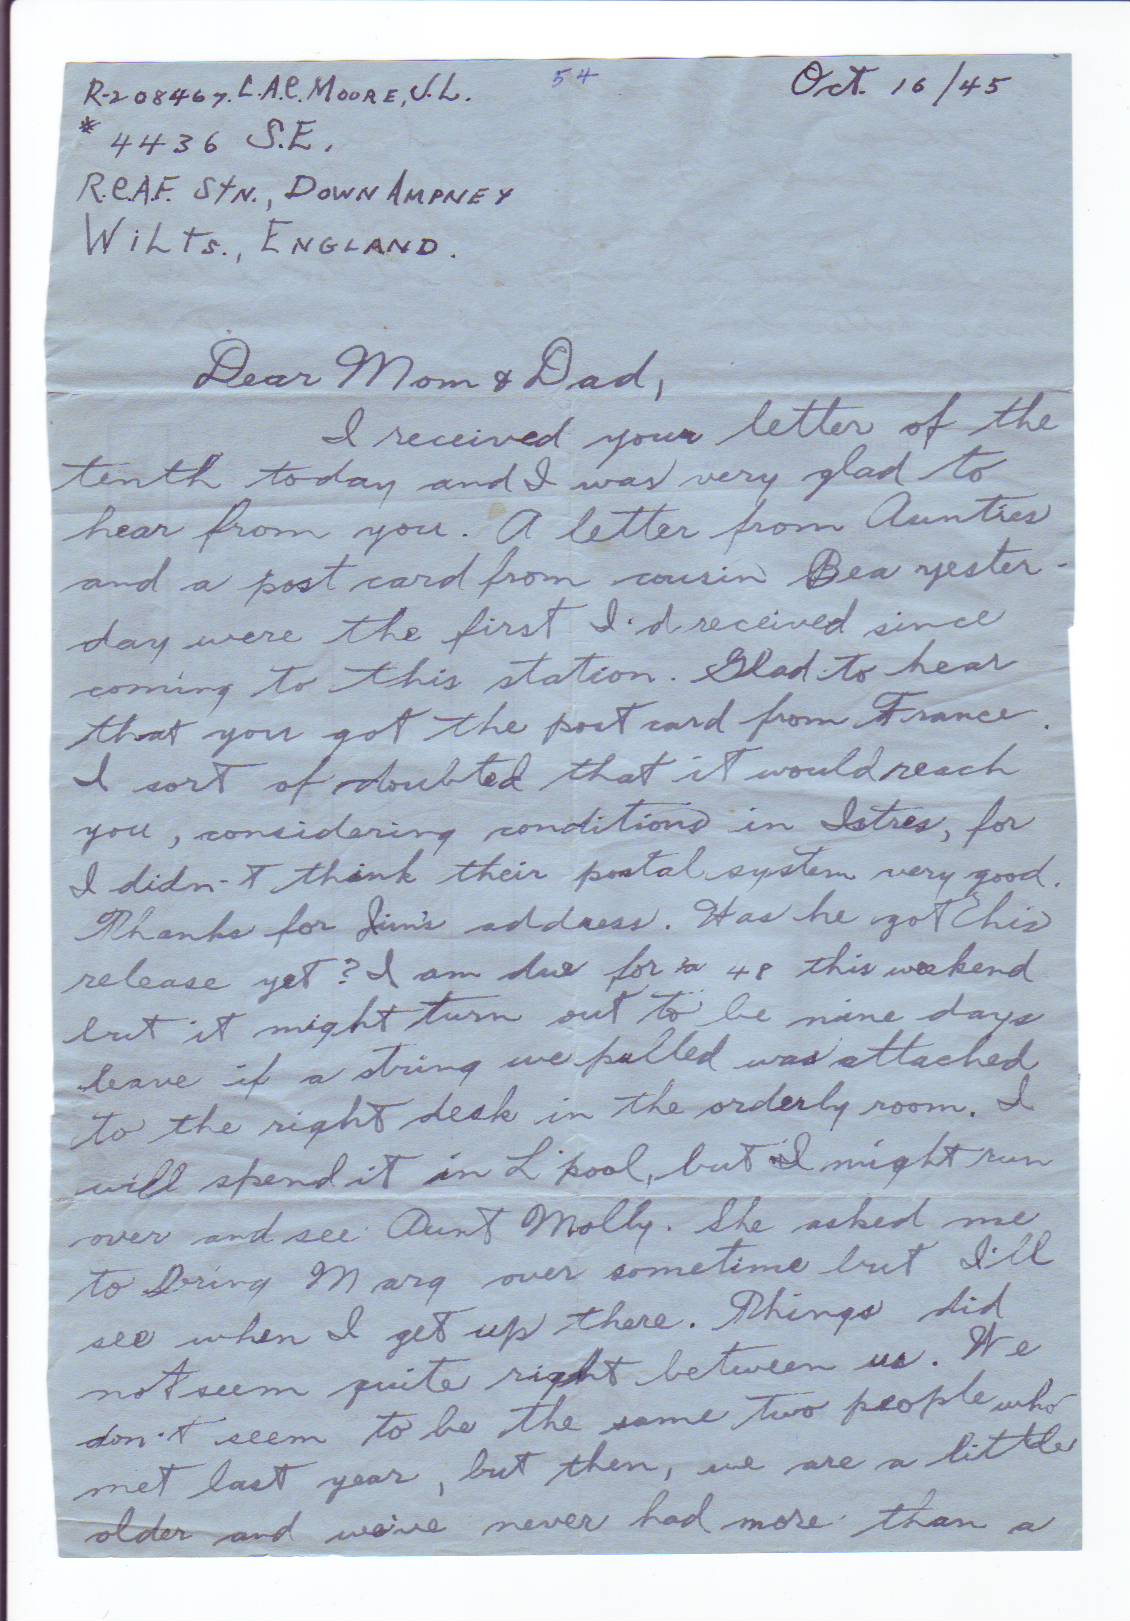 R-208467. L.A.C. MOORE, J.L.
54
Oct. 16/45
* 4436 S.E.
R.C.A.F. STN., DOWN AMPNEY
WILTS., ENGLAND.
Dear Mom & Dad,
I received your letter of the
tenth today and I was very glad to
hear from you. A letter from Aunties
and a post card from cousin Bea yester-
day were the first I'd received since
coming to this station. Glad to hear
that you got the post card from France.
I sort of doubted that it would reach
you, considering conditions in Istres, for
I didn't think their postal system very good.
Thanks for Jim's address. Has he got his
release yet? I am due for a 48 this weekend
but it might turn out to be nine days
leave if a string we pulled was attached
to the right desk in the orderly room. I
will spend it in L'pool, but I might run
over and see Aunt Molly. She asked me
to bring Marg over sometime but I'll
see when I get up there. Things did
not seem quite right between us. We
don't seem to be the same two people who
met last year, but then, we are a little
older and we've never had more than a